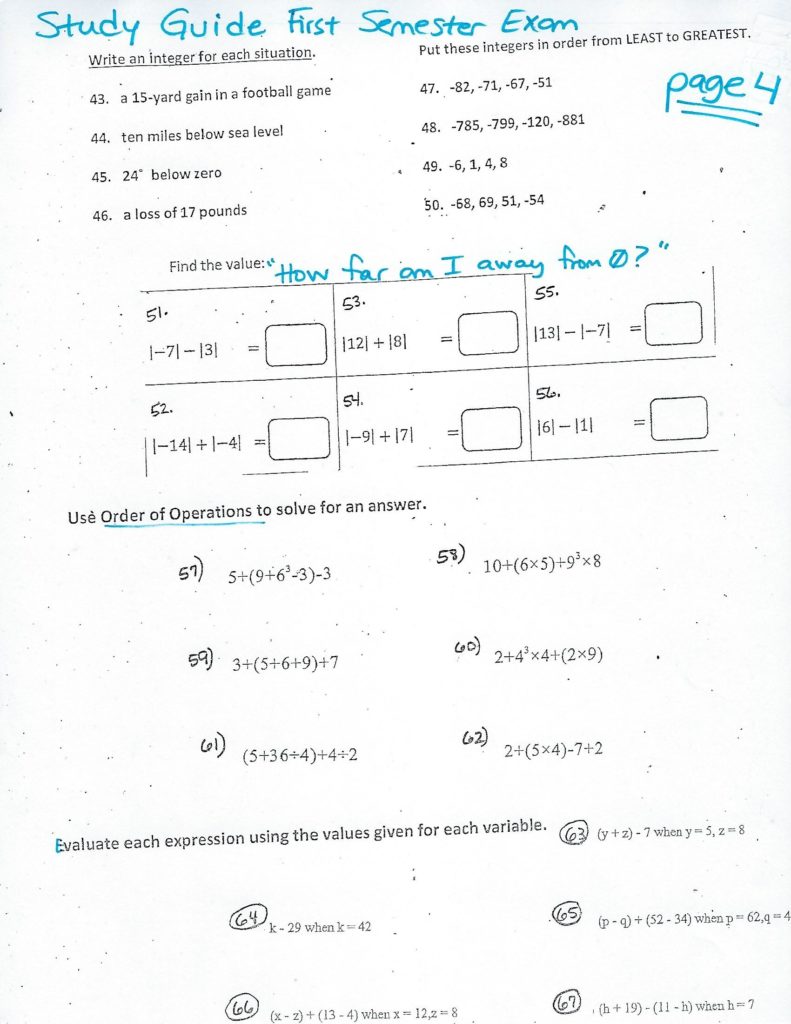 Study Guide First Semester Exam
Write an integer for each situation.
Put these integers in order from LEAST to GREATEST.
page 4
43. a 15-yard gain in a football game
47. -82, -71, -67, -51
44. ten miles below sea level
48. -785, -799, -120, -881
45. 24° below zero
49. -6, 1, 4, 8
46. a loss of 17 pounds
50. -68, 69, 51, -54
Find the value: "How far am I away from 0?"
51.
|−7| − |3| =
53.
|12| + |8| =
55.
|13| − |−7| =
52.
|−14| + |−4| =
54.
|−9| + |7| =
56.
|6| − |1| =
Use Order of Operations to solve for an answer.
57) 5+(9+6³-3)-3
58) 10+(6×5)+9³×8
59) 3+(5+6+9)+7
60) 2+4³×4+(2×9)
61) (5+36÷4)+4÷2
62) 2+(5×4)-7+2
Evaluate each expression using the values given for each variable.
63 (y + z) - 7 when y = 5, z = 8
64 k - 29 when k = 42
65 (p - q) + (52 - 34) when p = 62,q = 4
66 (x - z) + (13 - 4) when x = 12,z = 8
67 (h + 19) - (11 - h) when h = 7